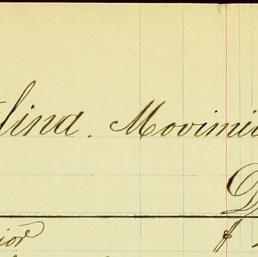 lina. Movimi
D
ior $